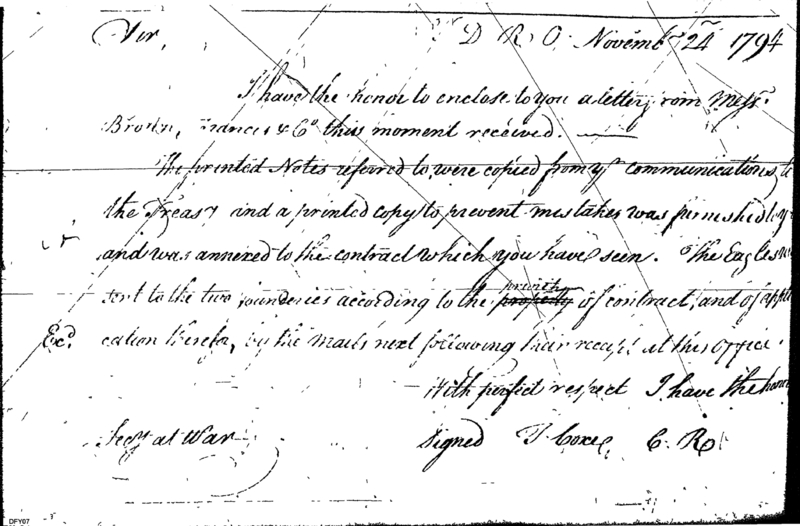 Sir, D R O. Novemb 24 1794
I have the honor to enclose to you a letter from Messrs.
Brown, Francis & Co this moment received.
The printed Notes referred to, were copied from yr communications to
the Treasy and a printed copy to prevent mistakes was furnished by
and was annexed to the contract which you have seen. The Eagles
sent to the two founderies according to the property priority of contract, and of appli
Ecd. cation therefor, by the mails next following their receipt at this Office.
With perfect respect I have the honor
Secy at War signed T Coxe, C. R
DFY07